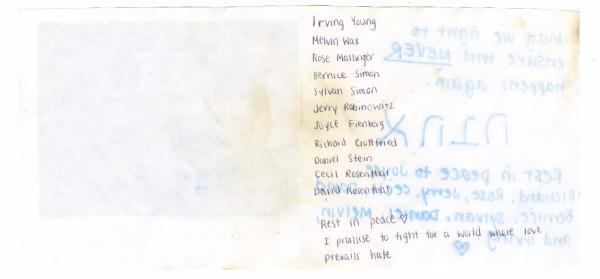 Irving Young
Melvin Wax
Rose Mallinger
Bernice Simon
Sylvan Simon
Jerry Rabinowitz
Joyce Fienberg
Richard Gottfried
Daniel Stein
Cecil Rosenthal
David Rosenthal
Rest in peace ♡
I promise to fight for a world where love
prevails hate
May we fight to
ensure this NEVER
happens again.
Rest in peace to Joyce,
Richard, Rose, Jerry, Cecil, David,
Bernice, Sylvan, Daniel, Melvin,
and Irving